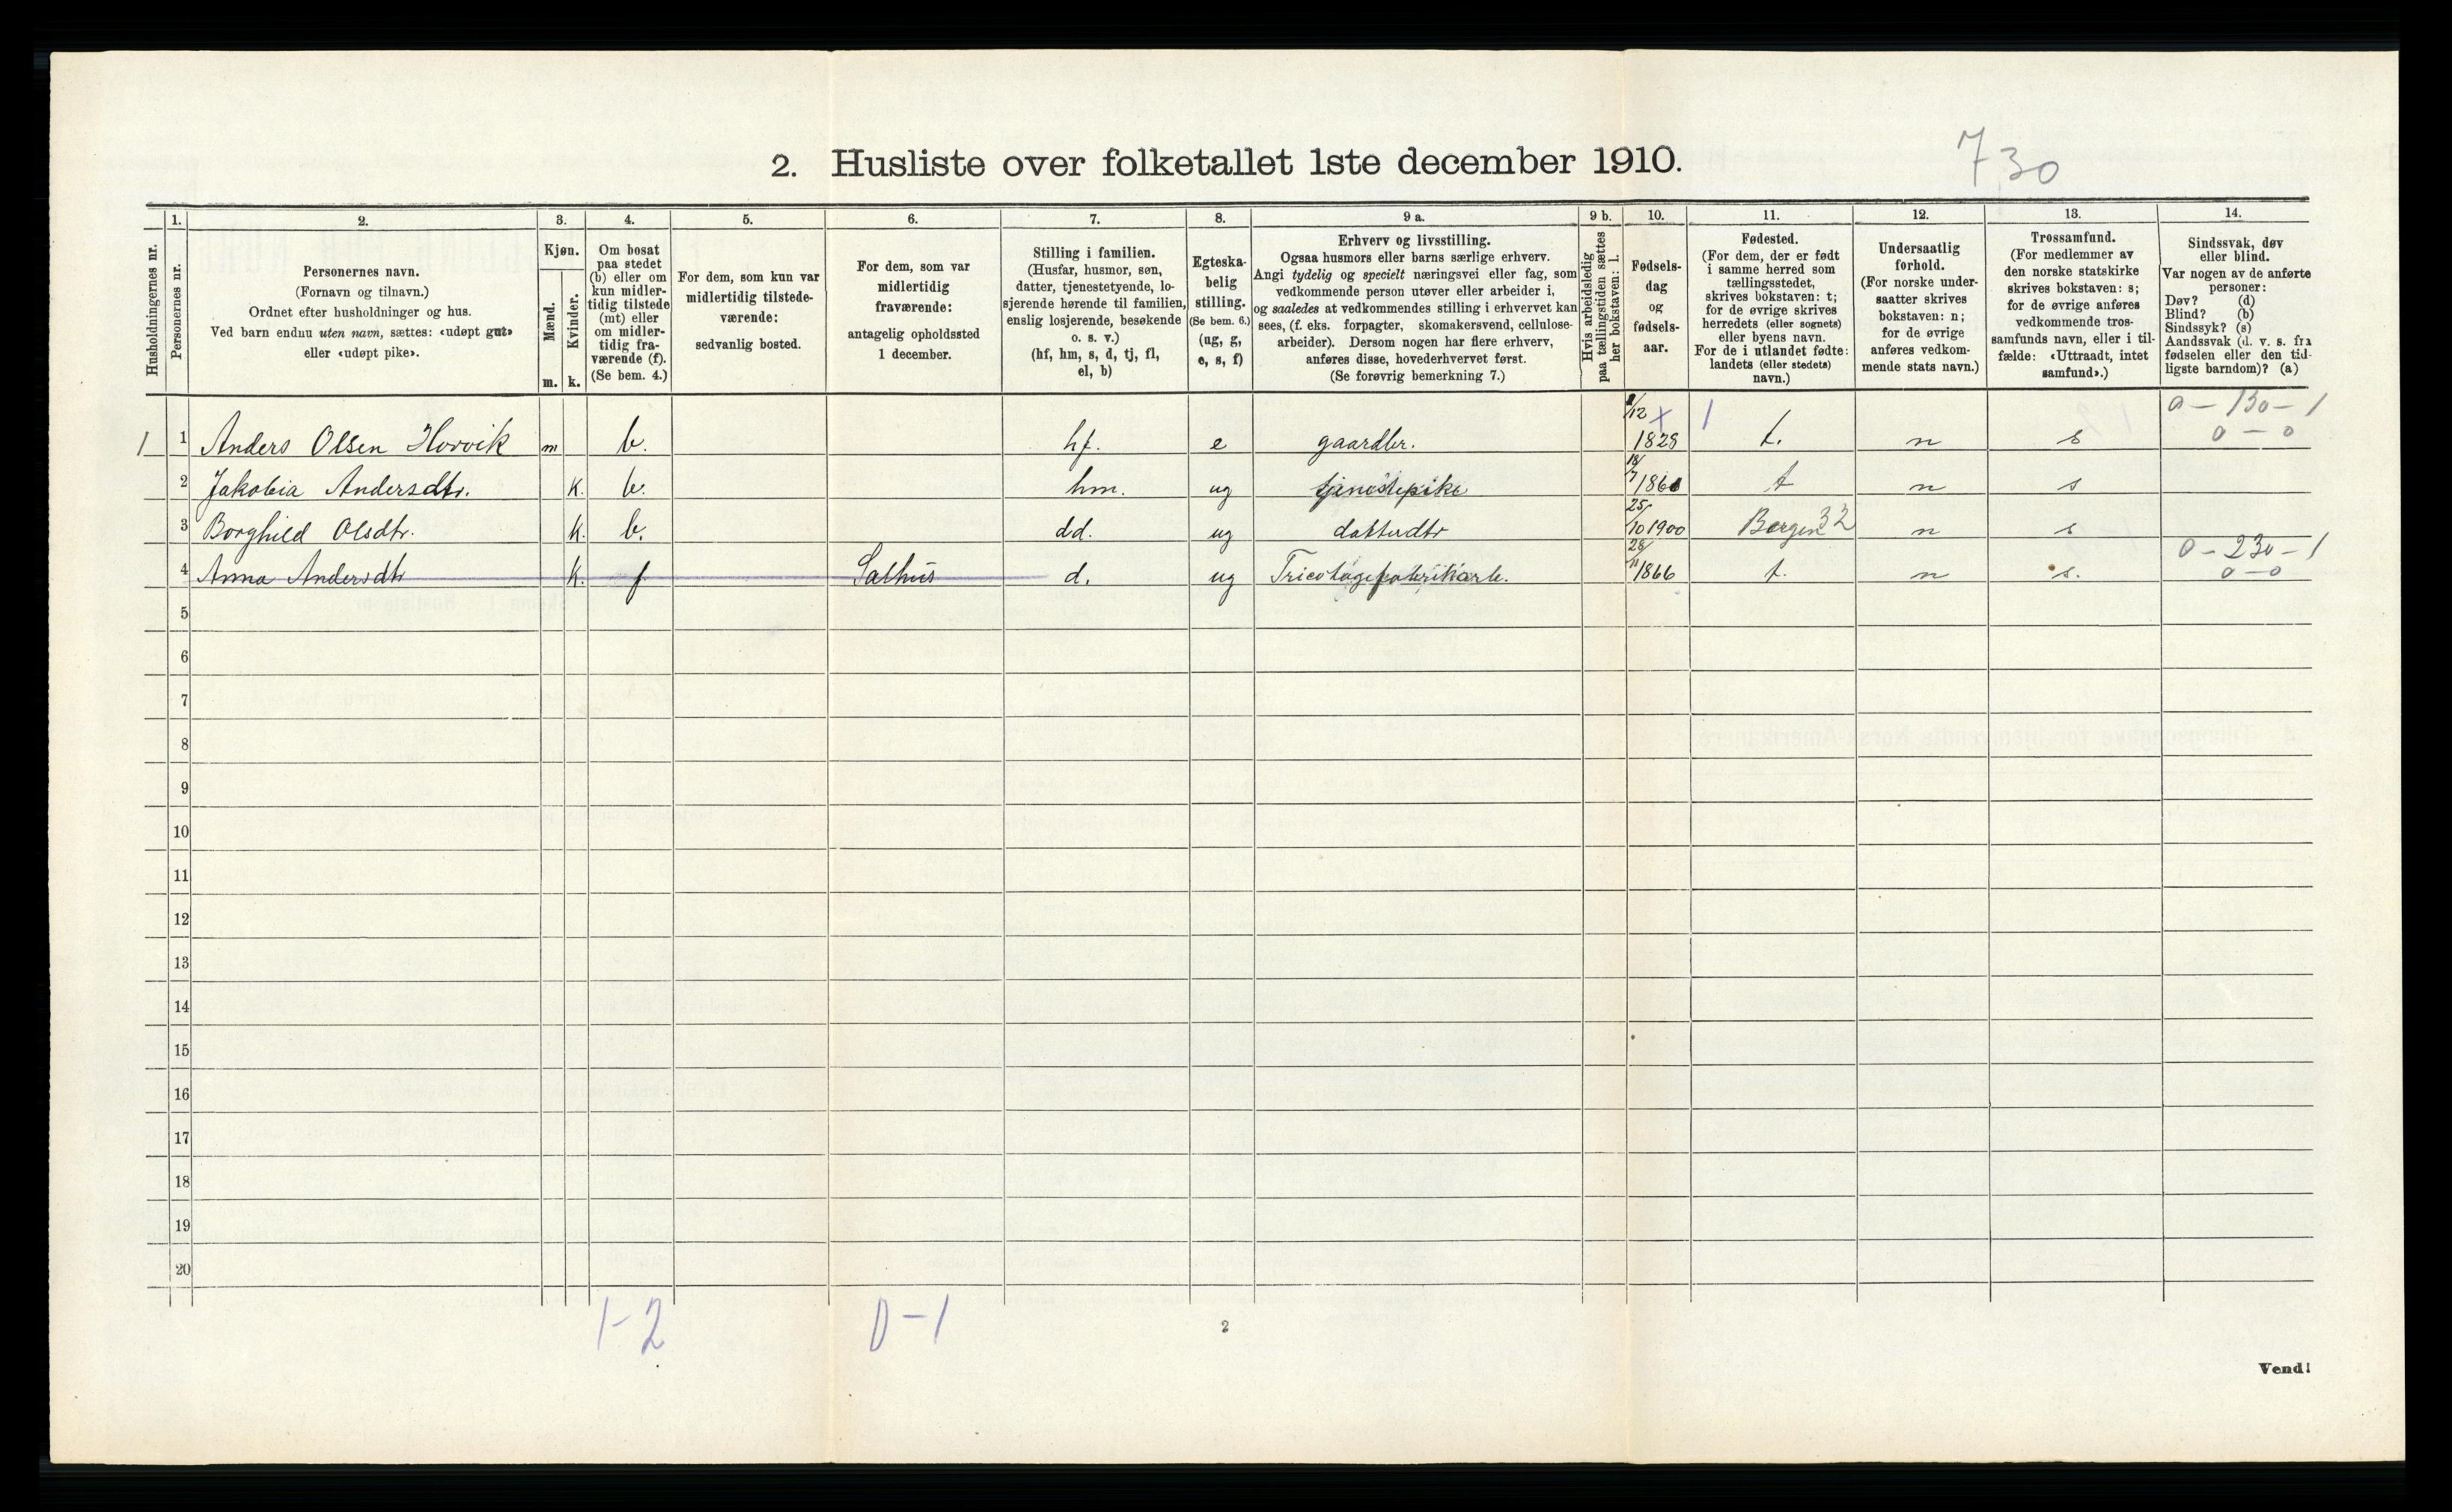 2. Husliste over folketallet 1ste december 1910.
730
Husholdningernes nr.
1.
Personernes nr.
2.
Personernes navn.
(Fornavn og tilnavn.)
Ordnet efter husholdninger og hus.
Ved barn endnu uten navn, sættes: «udøpt gut»
eller «udøpt pike».
3.
Kjøn.
Mænd.
Kvinder.
m. k.
4.
Om bosat
paa stedet
(b) eller om
kun midler-
tidig tilstede
(mt) eller
om midler-
tidig fra-
værende (f).
(Se bem. 4.)
5.
For dem, som kun var
midlertidig tilstede-
værende:
sedvanlig bosted.
6.
For dem, som var
midlertidig
fraværende:
antagelig opholdssted
1 december.
7.
Stilling i familien.
(Husfar, husmor, søn,
datter, tjenestetyende, lo-
sjerende hørende til familien,
enslig losjerende, besøkende
o. s. v.)
(hf, hm, s, d, tj, fl,
el, b)
8.
Egteska-
belig
stilling.
(Se bem. 6.)
(ug, g,
e, s, f)
9 a.
Erhverv og livsstilling.
Ogsaa husmors eller barns særlige erhverv.
Angi tydelig og specielt næringsvei eller fag, som
vedkommende person utøver eller arbeider i,
og saaledes at vedkommendes stilling i erhvervet kan
sees, (f. eks. forpagter, skomakersvend, cellulose-
arbeider). Dersom nogen har flere erhverv,
anføres disse, hovederhvervet først.
(Se forøvrig bemerkning 7.)
9 b.
Hvis arbeidsledig
paa tællingstiden sættes
her bokstaven: l.
10.
Fødsels-
dag
og
fødsels-
aar.
11.
Fødested.
(For dem, der er født
i samme herred som
tællingsstedet,
skrives bokstaven: t;
for de øvrige skrives
herredets (eller sognets)
eller byens navn.
For de i utlandet fødte:
landets (eller stedets)
navn.)
12.
Undersaatlig
forhold.
(For norske under-
saatter skrives
bokstaven: n;
for de øvrige
anføres vedkom-
mende stats navn.)
13.
Trossamfund.
(For medlemmer av
den norske statskirke
skrives bokstaven: s;
for de øvrige anføres
vedkommende tros-
samfunds navn, eller i til-
fælde: «Uttraadt, intet
samfund».)
14.
Sindssvak, døv
eller blind.
Var nogen av de anførte
personer:
Døv? (d)
Blind? (b)
Sindssyk? (s)
Aandssvak (d. v. s. fra
fødselen eller den tid-
ligste barndom)? (a)
1 1 Anders Olsen Horvik m b. hf. e gaardbr. /12 x 1828 1 t. n s 0-130-1 0-0
2 Jakobia Andersdtr. K. b. hm. ug tjenestepike 18/7 186 t n s
3 Borghild Olsdtr. K. b. dd. ug datterdtr 25/10 1900 Bergen 32 n s
4 Anna Andersdtr K. f Salhus d. ug Tricotagefabrikarb. 28/11 1866 t. n s. 0-230-1 0-0
5
6
7
8
9
10
11
12
13
14
15
16
17
18
19
20
1-2 0-1
2
Vend!